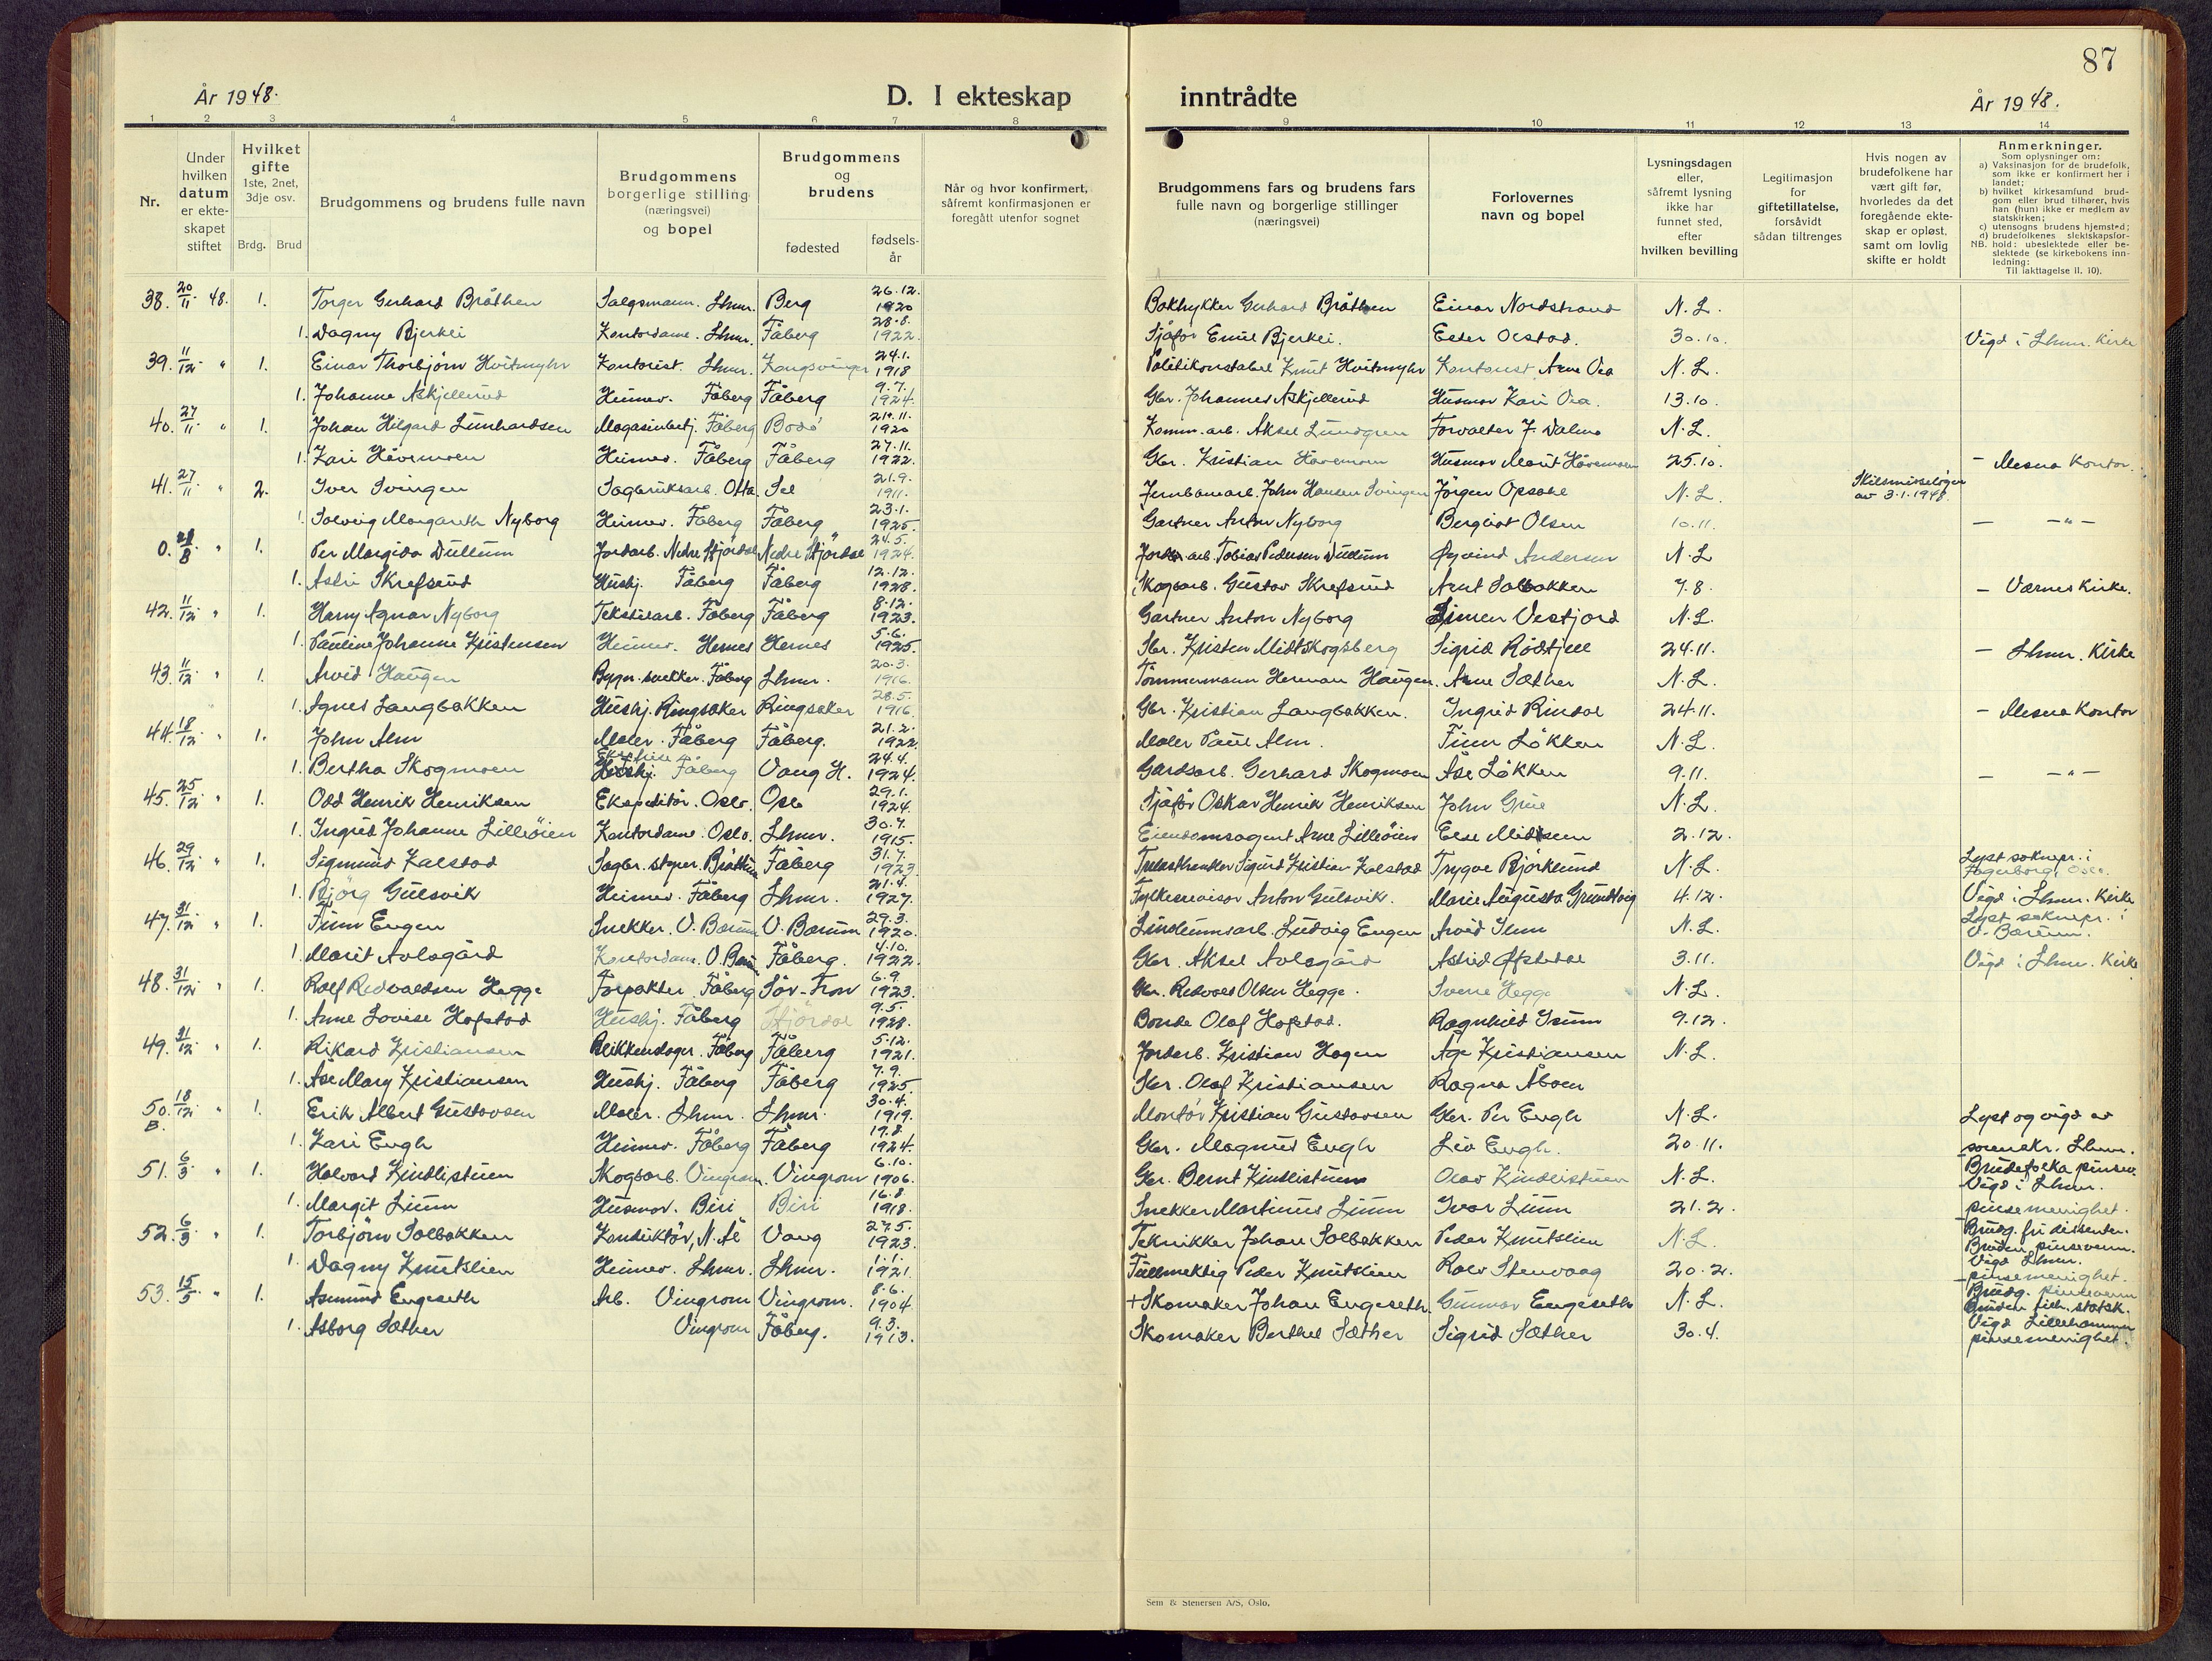 87
År 1948.
D. I ekteskap inntrådte
År 1948.
1 2 3 4 5 6 7 8 9 10 11 12 13 14
Nr.
Under hvilken datum er ekteskapet stiftet
Hvilket gifte 1ste, 2net, 3dje osv.
Brdg. Brud
Brudgommens og brudens fulle navn
Brudgommens borgerlige stilling (næringsvei) og bopel
Brudgommens og brudens
fødested
fødsels-år
Når og hvor konfirmert, såfremt konfirmasjonen er foregått utenfor sognet
Brudgommens fars og brudens fars fulle navn og borgerlige stillinger (næringsvei)
Forlovernes navn og bopel
Lysningsdagen eller, såfremt lysning ikke har funnet sted, efter hvilken bevilling
Legitimasjon for giftetillatelse, forsåvidt sådan tiltrenges
Hvis nogen av brudefolkene har vært gift før, hvorledes da det foregående ekteskap er opløst, samt om lovlig skifte er holdt
Anmerkninger.
Som oplysninger om:
a) Vaksinasjon for de brudefolk, som ikke er konfirmert her i landet;
b) hvilket kirkesamfund brudgom eller brud tilhører, hvis han (hun) ikke er medlem av statskirken;
c) utensogns brudens hjemsted;
d) brudefolkenes slektskapsforhold: ubeslektede eller beslektede (se kirkebokens innledning:
NB.
Til iakttagelse II. 10).
38. 20/11 48. 1. Torger Gerhard Bråthen Salgsmann. Lhmr. Berg 26.12. 1920 Boktrykker Gerhard Bråthen Einar Nordstrand N.L.
1. Dagny Bjerkli Kontordame. Lhmr. Fåberg 28.8. 1922 Sjåfør Emil Bjerkli. 30.10. Vigd i Lhmr. Kirke
39. 11/12 " 1. Einar Thorbjørn Hvitmyhr Kontorist. Lhmr. Kongsvinger 24.1. 1918 Politikonstabel Knut Hvitmyhr Kontorist Arne N.L.
1. Johanne Askjellerud Heimev. Fåberg Fåberg 9.7. 1924. Gbr. Johannes Askjellerud Husmor Kari 13.10.
40. 27/11 " 1. Johan Hilgard Lunhardsen Magasinarb. Fåberg Bodø 1920 Komm. arb. Aksel Lundgren Forvalter J. Dalmo N.L.
1. Kari Håvemoen Heimev. Fåberg Fåberg 27.11. 1922. Gbr. Kristian Håvemoen Husmor Marit Håvemoen 25.10. - Mesna Kontor.
41. 27/11 " 2. Iver Svingen Sagbruksarb. Otta. Sel 21.9. 1911. Jernbanearb. John Hansen Svingen Jørgen Opsahl N.L. Skilsmisseløyve av 3.1.1948.
1. Solveig Margareth Nyborg Heimev. Fåberg Fåberg 23.1. 1925. Gartner Anton Nyborg Bergliot Olsen 10.11. — —"—
0. 28/8 " 1. Per Margido Dullum Jordarb. Nedre Stjørdal Nedre Stjørdal 24.5. 1924. Jord arb. Tobias Pedersen Dullum Øyvind Andersen N.L
1. Astri Skrefsrud Hushj. Fåberg Fåberg 12.12. 1928. Skogsarb. Gustav Skrefsrud Arnt Solbakken 7.8. - Værnes Kirke.
42. 11/12 " 1. Harry Agnar Nyborg Tekstilarb. Fåberg Fåberg 8.12. 1923. Gartner Anton Nyborg Simen Vestfjord N.L.
1. Pauline Johanne Kristensen Heimev. Hernes Hernes 5.6. 1925. Gbr. Kristen Midtskogsberg Sigrid Rødtjell 24.11. - Lhmr. Kirke
43. 11/12 " 1. Arvid Haugen Bygn. snekker. Fåberg Lhmr. 20.3. 1916. Tømmermann Herman Haugen. Arne Sæther N.L.
1. Agnes Langbakken Hushj. Ringsaker Ringsaker 28.5. 1916. Gbr. Kristian Langbakken. Ingrid Rindal 24.11. - Mesna Kontor
44. 18/12 " 1. John Alm Maler. Fåberg Fåberg. 21.2. 1922. Maler Paul Alm. Finn Løkken N.L.
1. Bertha Skogmoen Hushj. Fåberg Vang H. 24.4. 1924. Gårdsarb. Gerhard Skogmoen Åse Løkken 9.11. — —"—
45. 25/12 " 1. Odd Henrik Henriksen Ekspeditør. Oslo. Oslo 29.1. 1924. Sjåfør Oskar Henrik Henriksen John Grue N.L.
1. Ingrid Johanne Lilleøien Kontordame. Oslo. Lhmr. 30.7. 1915. Eiendomsagent Arne Lilleøien Else Midtsem 2.12.
46. 29/12 " 1. Sigmund Kalstad Sagbr. styrer. Bråttum Fåberg 31.7. 1923 Trelasthandler Sigurd Kristian Kalstad Trygve Bjørklund N.L. Lyst soknepr. i Fagerborg, Oslo.
1. Bjørg Gulsvik Heimev. Fåberg Lhmr. 21.4. 1927. Fylkesrevisor Anton Gulsvik. Marie Augusta Grundtvig 4.12. Vigd i Lhmr. Kirke
47. 31/12 " 1. Finn Engen Snekker. V. Bærum V. Bærum 29.3. 1920. Linoleumsarb. Ludvig Engen Arvid N.L. Lyst soknepr. i V. Bærum.
1. Marit Avlsgård Kontordame. V. Bærum Fåberg. 4.10. 1922. Gbr. Aksel Avlsgård Astrid Ofstedal 3.11. Vigd i Lhmr. Kirke
48. 31/12 " 1. Rolf Redvaldsen Hegge Forpakter. Fåberg Sør-Fron 6.9. 1923. Gbr. Redvald Olsen Hegge. Sverre Hegge N.L.
1. Anne Lovise Hofstad Hushj. Fåberg Stjørdal 9.5. 1928. Bonde Olaf Hofstad. Ragnhild Isum 9.12.
49. 31/12 " 1. Rikard Kristiansen Blikkenslager. Fåberg Fåberg 5.12. 1921. Jordarb. Kristian Hagen Åge Kristiansen N.L.
1. Åse Mary Kristiansen Hushj. Fåberg Fåberg 7.9. 1925. Gbr. Olaf Kristiansen Ragna Åboen
50. B. 18/12 " 1. Erik Albert Gustavsen Maler. Lhmr. Lhmr. 30.4. 1919. Montør Kristian Gustavsen Gbr. Per Engh N.L. Lyst og vigd av
1. Kari Engh Heimev. Fåberg Fåberg 19.8. 1924. Gbr. Magnus Engh Liv Engh. 20.11. sorenskr. Lhmr.
51. 6/3 " 1. Halvard Kindlistuen Skogsarb. Vingrom. Vingrom 6.10. 1906. Gbr. Bernt Kindlistuen Olav Kindlistuen N.L. Brudefolka pinsev. Vigd i Lhmr.
1. Margit Lium Husmor. Biri Biri 16.8. 1918. Snekker Martinus Lium Ivar Lium 21.2. pinsemenighet.
52. 6/3 " 1. Torbjørn Solbakken Konduktør, N. Ål Vang 27.5. 1923. Teknikker Johan Solbakken Peder Knutslien N.L. Brudg. fri dissenter. Bruden pinsevenn.
1. Dagny Knutslien Heimev. Lhmr. Lhmr. 1.1. 1921. Fullmektig Peder Knutslien Rolv Stenvaag 20.2. Vigd Lhmr. pinsemenighet.
53. 15/5 " 1. Asmund Engeseth Arb. Vingrom Vingrom. 8.6. 1904. +Skomaker Johan Engeseth. Gunnar Engeseth N.L. Brudg. pinsevenn Bruden tilh. statsk.
1. Asborg Sæther Vingrom Fåberg. 9.3. 1913. Skomaker Berthel Sæther Sigrid Sæther 30.4. Vigd Lillehammer pinsemenighet.
Sem & Stenersen A/S, Oslo.